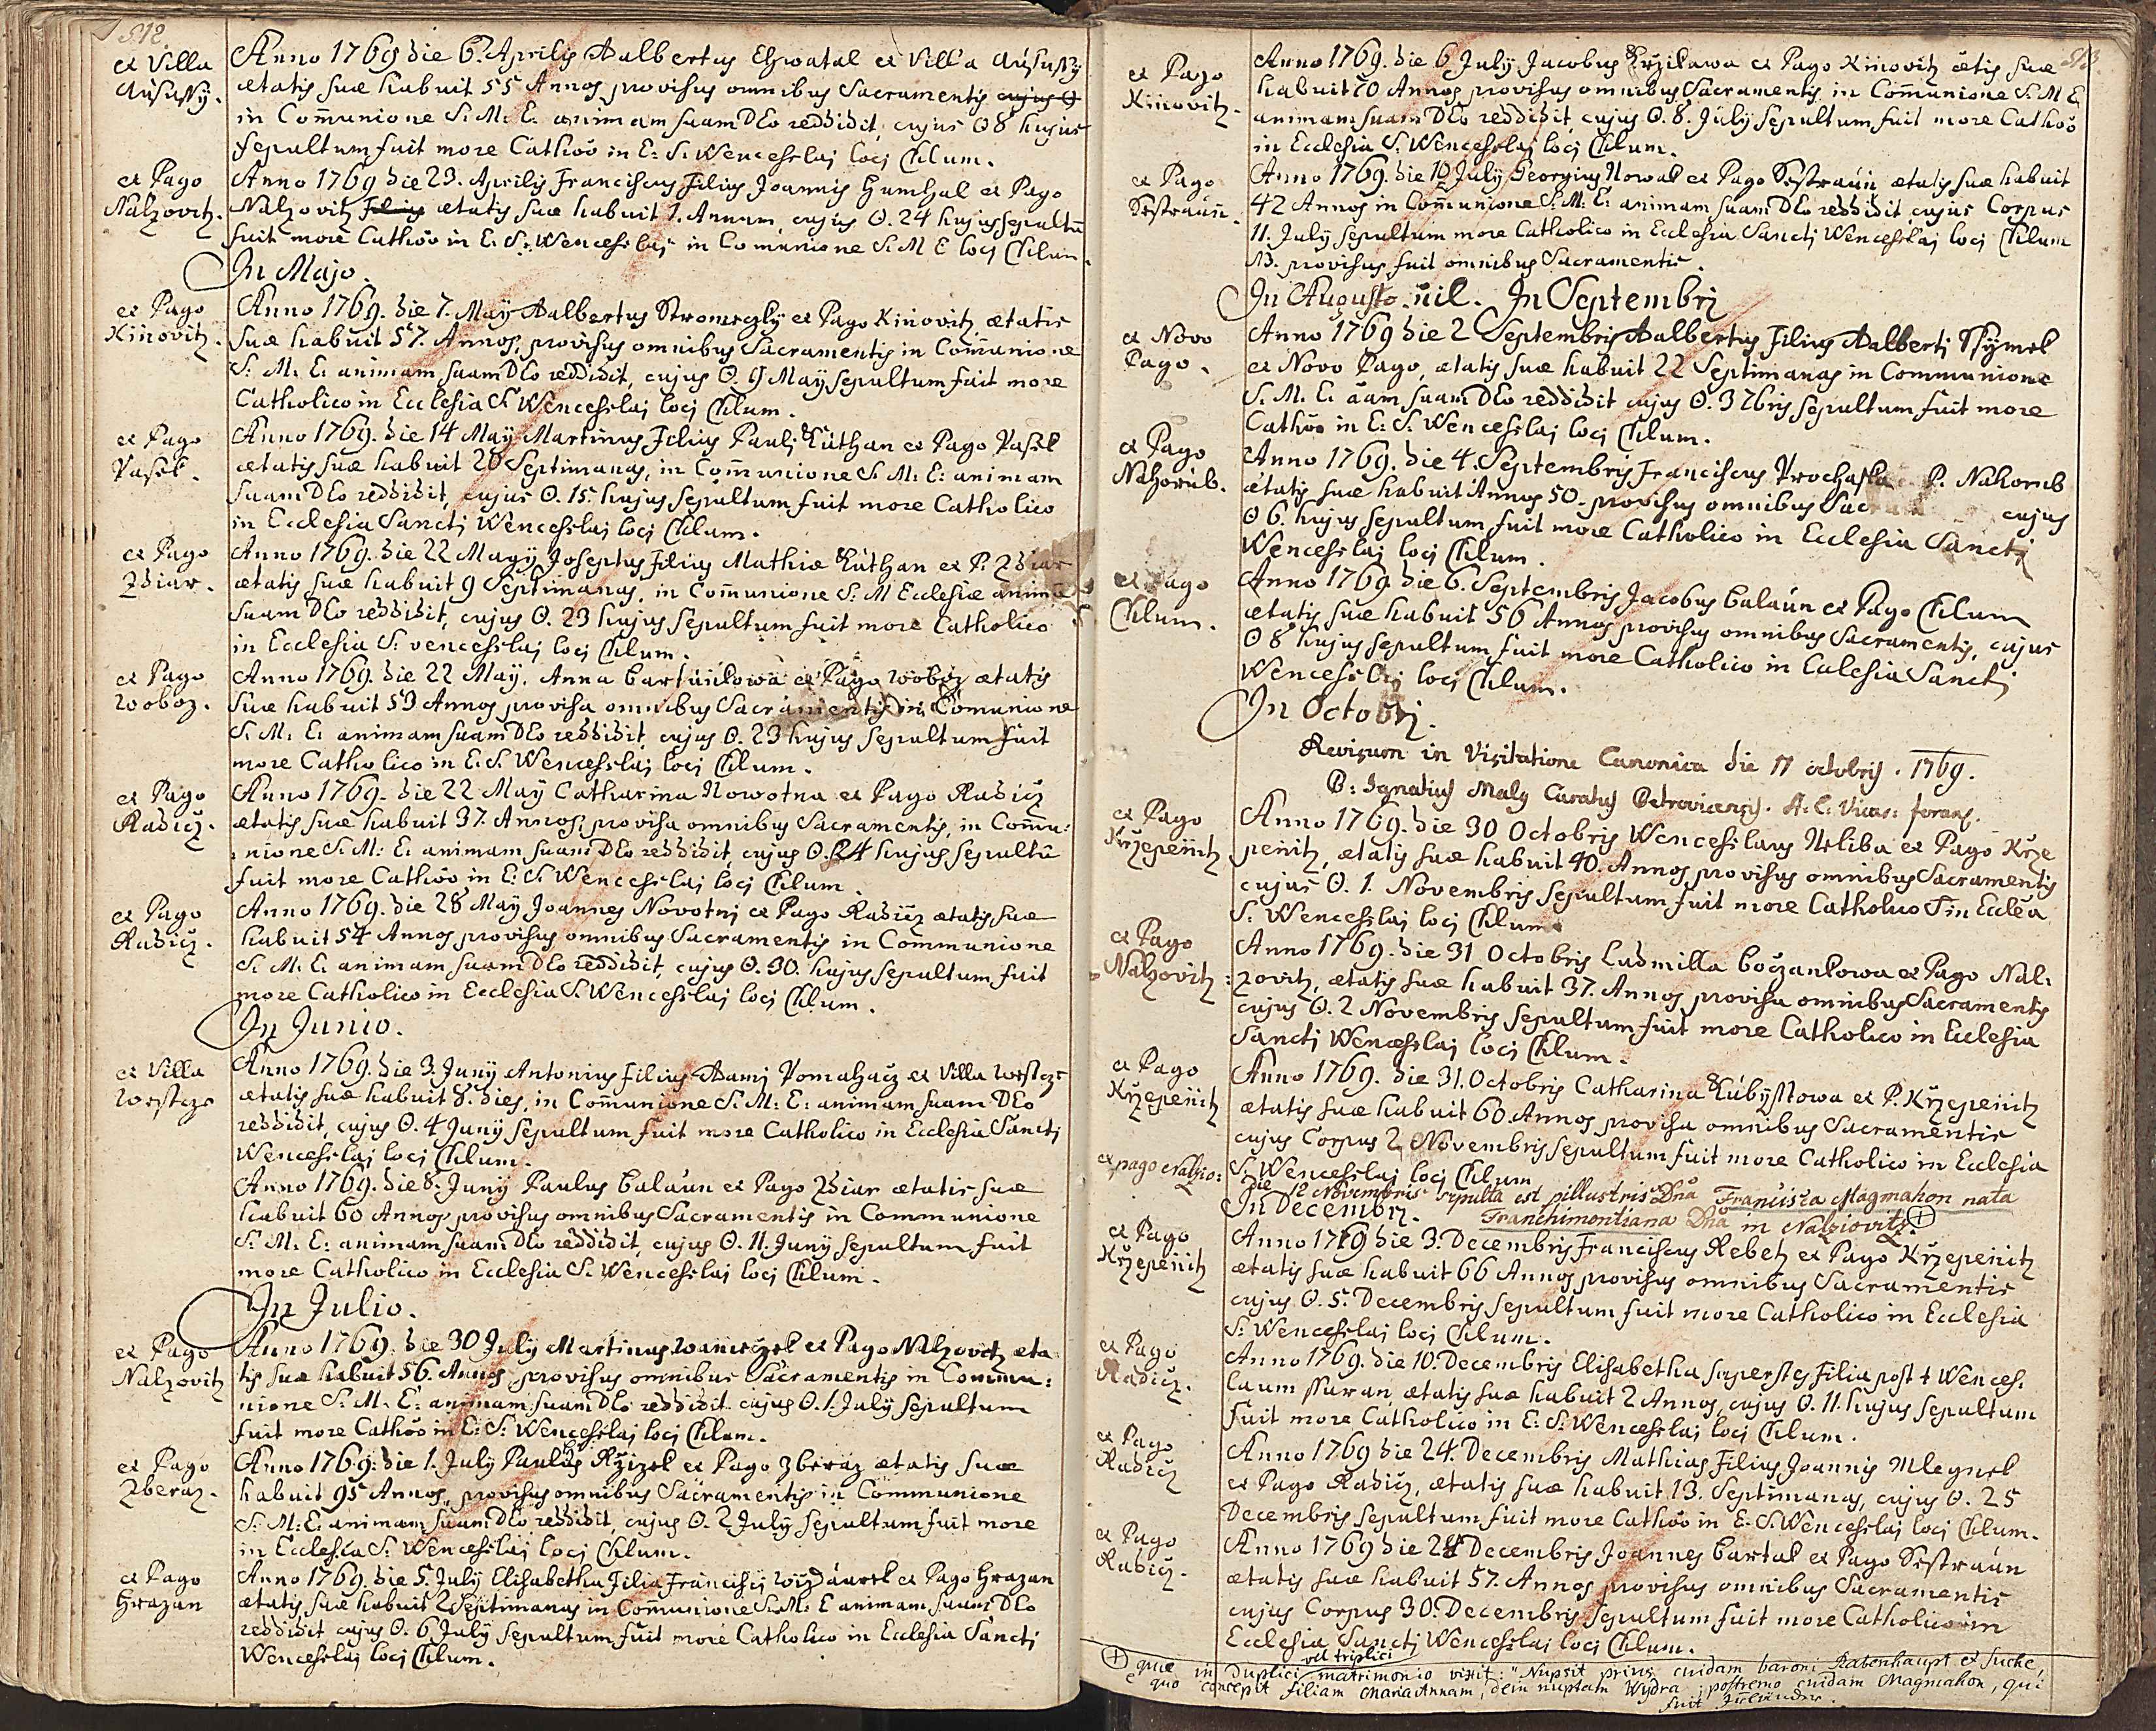 512.
ex Villa
Aúsússÿ.
Anno 1769 die 6. Aprilis Adalbertus Chwatal ex Villa Aúsussÿ
ætatis suæ habuit 55 Annos provisus omnibus Sacramentis cujus O
in Com̄unione S. M. E. animam suam DEo reddidit, cujus O 8 hujus
sepultum fuit more Cathõo in E: S. Wencesslaj locj Chlum.
ex Pago
Nalzovitz.
Anno 1769 die 23. Aprilis Franciscus Filius Joannis Humhal ex Pago
Nalzovitz Filius ætatis suæ habuit 1. Annum, cujus O. 24 hujus sepultū
fuit more Cathõo in E. S. Wencesslaj in Comunione S. M E locj Chlum.
In Majo.
ex Pago
Kniovitz.
Anno 1769. die 7. Maÿ Adalbertus Stromsglÿ ex Pago Kniovitz ætatis
suæ habuit 57. Annos, provisus omnibus Sacramentis in Com̄unione
S. M. E. animam suam DEo reddidit, cujus O. 9 Maÿ sepultum fuit more
Catholico in Ecclesia S. Wencesslaj locj Chlum.
ex Pago
Pasek.
Anno 1769. die 14 Maÿ Martinus Filius Paulj Kúthan ex Pago Pasek
ætatis suæ habuit 20 Septimanas, in Com̄unione S. M. E: animam
suam DEo reddidit, cujus O. 15. hujus sepultum fuit more Catholico
in Ecclesia Sanctj Wencesslaj locj Chlum.
ex Pago
Zdiar.
Anno 1769. die 22 Mayÿ Josephus Filius Mathiæ Kúthan ex P. Zdiar
ætatis suæ habuit 9 Septimanas, in Com̄unione S. M Ecclesiæ animā
suam DEo reddidit, cujus O. 23 hujus sepultum fuit more Catholico
in Ecclesia S. vencesslaj locj Chlum.
ex Pago
Woboz.
Anno 1769. die 22 Maÿ. Anna Bartúnkowa ex Pago Woboz ætatis
suæ habuit 53 Annos provisa omnibus Sacramentis in Comunione
S. M. E. animam suam DEo reddidit, cujus O. 23 hujus sepultum fuit
more Catholico in E. S. Wencesslaj locj Chlum.
ex Pago
Radicz.
Anno 1769. die 22 Maÿ Catharina Nowotna ex Pago Radicz
ætatis suæ habuit 37. Annos, provisa omnibus Sacramentis, in Com̄u:
nione S. M: E. animam suam DEo reddidit, cujus O. 24 hujus sepultū
fuit more Cathõo in E: S. Wencesslaj locj Chlum.
ex Pago
Radicz.
Anno 1769. die 28 Maÿ Joannes Novotnj ex Pago Radicz ætatis suæ
habuit 54 Annos provisus omnibus Sacramentis in Communione
S. M. E. animam suam DEo reddidit, cujus O. 30. hujus sepultum fuit
more Catholico in Ecclesia S. Wencesslaj locj Chlum.
In Junio.
ex Villa
Westcze
Anno 1769. die 3. Junÿ Antonius Filius Adamj Pomahacz ex Villa Westcze
ætatis suæ habuit 8. dies, in Com̄unione S. M: E: animam suam DEo
reddidit, cujus O. 4 Junÿ sepultum fuit more Catholico in Ecclesia Sanctj
Wencesslaj locj Chlum.
Anno 1769. die 8. Junÿ Paulus Balaún ex Pago Zdiar ætatis suæ
habuit 60 Annos provisus omnibus Sacramentis in Communione
S. M. E: animam suam DEo reddidit, cujus O. 11. Junÿ sepultum fuit
more Catholico in Ecclesia S. Wencesslaj locj Chlum.
In Julio.
ex Pago
Nalzovitz
Anno 1769. die 30 Julÿ Martinus Waniczek ex Pago Nalzovitz æta
tis suæ habuit 56. Annos provisus omnibus Sacramentis in Commu:
nione S. M. E: animam suam DEo reddidit cujus O. 1. Julÿ sepultum
fuit more Cathõo in E: S: Wencesslaj locj Chlum.
ex Pago
Zberaz.
Anno 1769. die 1. Julÿ Paulus Rzizek ex Pago Zberaz ætatis suæ
habuit 95 Annos, provisus omnibus Sacramentis in Communione
S. M: E: animam suam DEo reddidit, cujus O. 2 Julÿ sepultum fuit more
in Ecclesia S: Wencesslaj locj Chlum.
ex Pago
Hrazan
Anno 1769. die 5. Julÿ Elisabetha Filia Franciscj ex Pago Hrazan
ætatis suæ habuit 2 Septimanas in Com̄unione S. M: E animam suam DEo
reddidit cujus O. 6 Julÿ sepultum fuit more Catholico in Ecclesia Sanctj
Wencesslaj locj Chlum.
513.
ex Pago
Kniovitz.
Anno 1769. die 6 Julÿ Jacobus Krzikawa ex Pago Kniovitz ætis suæ
habuit 70 Annos provisus omnibus Sacramentis in Com̄unione S. M E.
animam suam DEo reddidit, cujus O. 8. Julÿ sepultum fuit more Cathõo
in Ecclesia S. Wencesslaj locj Chlum.
ex Pago
Sestraúň.
Anno 1769. die 10 Julÿ Georgius Nowak ex Pago Sestraúň ætatis suæ habuit
42 Annos in Com̄unione S. M: E: animam suam DEo reddidit cujus Corpus
11. Julÿ sepultum more Catholico in Ecclesia Sanctj Wencesslaj locj Chlum
NB. provisus fuit omnibus Sacramentis.
In Augusto nil. In Septembrj
ex Novo
Pago.
Anno 1769 die 2 Septembris Adalbertus Filius Adalbertj Ssÿmek
ex Novo Pago, ætatis suæ habuit 22 Septimanas in Communione
S. M. E. āam suam DEo reddidit cujus O. 3 7bris sepultum fuit more
Cathõo in E: S: Wencesslaj locj Chlum.
ex Pago
Nahorub.
Anno 1769. die 4. Septembris Franciscus Prochaska P. Nahorub
ætatis suæ habuit Annos 50. provisus omnibus cujus
O 6. hujus sepultum fuit more Catholico in Ecclesia Sanctj
Wencesslaj locj Chlum.
ex Pago
Chlum.
Anno 1769. die 6. Septembris Jacobus Balaún ex Pago Chlum
ætatis suæ habuit 56 Annos provisus omnibus Sacramentis, cujus
O 8 hujus sepultum fuit more Catholico in Eclesia Sanctj
Wencesslaj locj Chlum.
In Octobrj.
Revisum in Visitatione Canonica die 17 octobris. 1769.
P: Ignatius Maly Curatus Petrovicensis. A: C: Vicar: foran.
ex Pago
Krzepenitz
Anno 1769. die 30 Octobris Wencesslaus Neliba ex Pago Krze
penitz, ætatis suæ habuit 40. Annos provisus omnibus Sacramentis
cujus O. 1. Novembris sepultum fuit more Catholico in Ecclēa
S. Wencesslaj locj Chlum.
ex Pago
Nalzovitz:
Anno 1769. die 31 Octobris Ludmilla Boczankowa ex Pago Nal:
zovitz, ætatis suæ habuit 37. Annos provisa omnibus Sacramentis
cujus O. 2 Novembris sepultum fuit more Catholico in Ecclesia
Sanctj Wencesslaj locj Chlum.
ex Pago
Krzepenitz
Anno 1769. die 31. Octobris Catharina Kúbÿstowa ex P. Krzepenitz
ætatis suæ habuit 60 Annos provisa omnibus Sacramentis
cujus Corpus 2 Novembris sepultum fuit more Catholico in Ecclesia
S. Wencesslaj locj Chlum
ex pago Nalzio:
Die 12 Novembris sepulta est pillustris Dña Francisca Magmahon nata
Franchimontiana Dña in Nalziovitz. ⊕
In Decembrj.
ex Pago
Krzepenitz
Anno 1769 die 3. Decembris Franciscus Rebetz ex Pago Krzepenitz
ætatis suæ habuit 66 Annos provisus omnibus Sacramentis
cujus O. 5. Decembris sepultum fuit more Catholico in Ecclesia
S: Wencesslaj locj Chlum.
ex Pago
Radicz.
Anno 1769. die 10. Decembris Elisabetha superstes Filia post † Wences:
laum ssuran, ætatis suæ habuit 2 Annos, cujus O. 11. hujus sepultum
fuit more Catholico in E: S. Wencesslaj locj Chlum.
ex Pago
Radicz
Anno 1769 die 24. Decembris Mathias Filius Joannis Mlegnek
ex Pago Radicz, ætatis suæ habuit 13. Septimanas, cujus O. 25
Decembris sepultum fuit more Cathõo in E: S. Wencesslaj locj Chlum.
ex Pago
Radicz.
Anno 1769 die 28 Decembris Joannes Bartak ex Pago Sestraún
ætatis suæ habuit 57. Annos provisus omnibus Sacramentis
cujus Corpus 30. Decembris sepultum fuit more Catholico in
Ecclesia Sanctj Wencesslaj locj Chlum.
vel triplici
⊕ quæ in duplici matrimonio vixit: "Nupsit prius cuidam baroni Rabenhaupt et Suche,
e quo concepit filiam MariaAnnam, dein nuptam Wydra; postremo cuidam Magmahon, qui
fuit